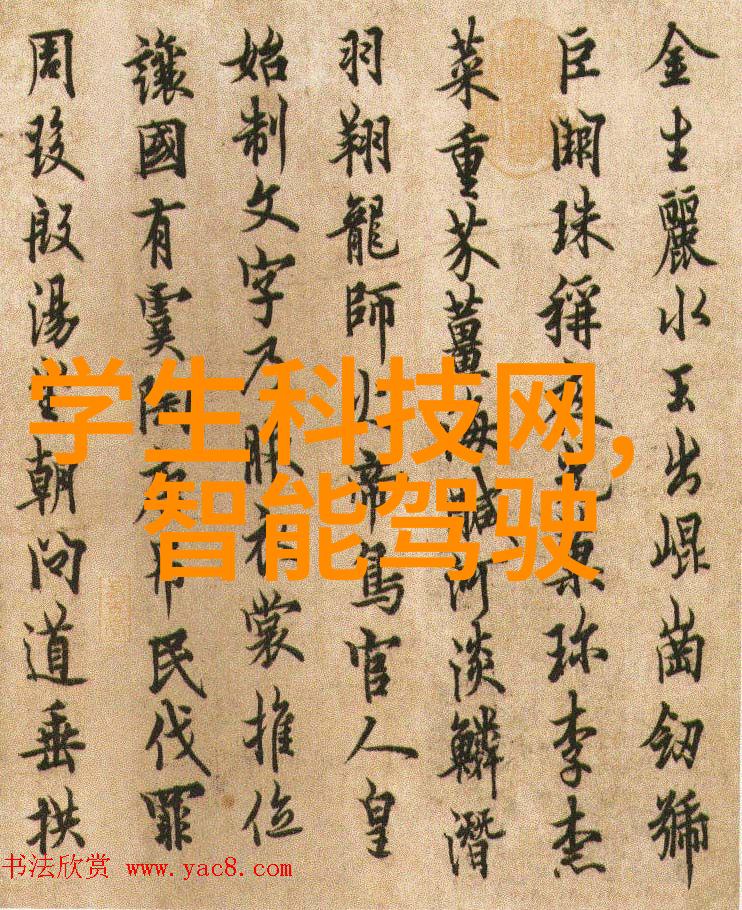 金生麗水玉出崐崗釼號
巨闕珠稱夜光果珎李柰
菜重芥薑海醎河淡鱗潛
羽翔龍師火帝鳥官人皇
始制文字乃服衣裳推位
讓國有虞陶唐弔民伐罪
周發殷湯坐朝問道垂拱
学生科技网,
智能驾驶
书法欣赏 www.yac8.com